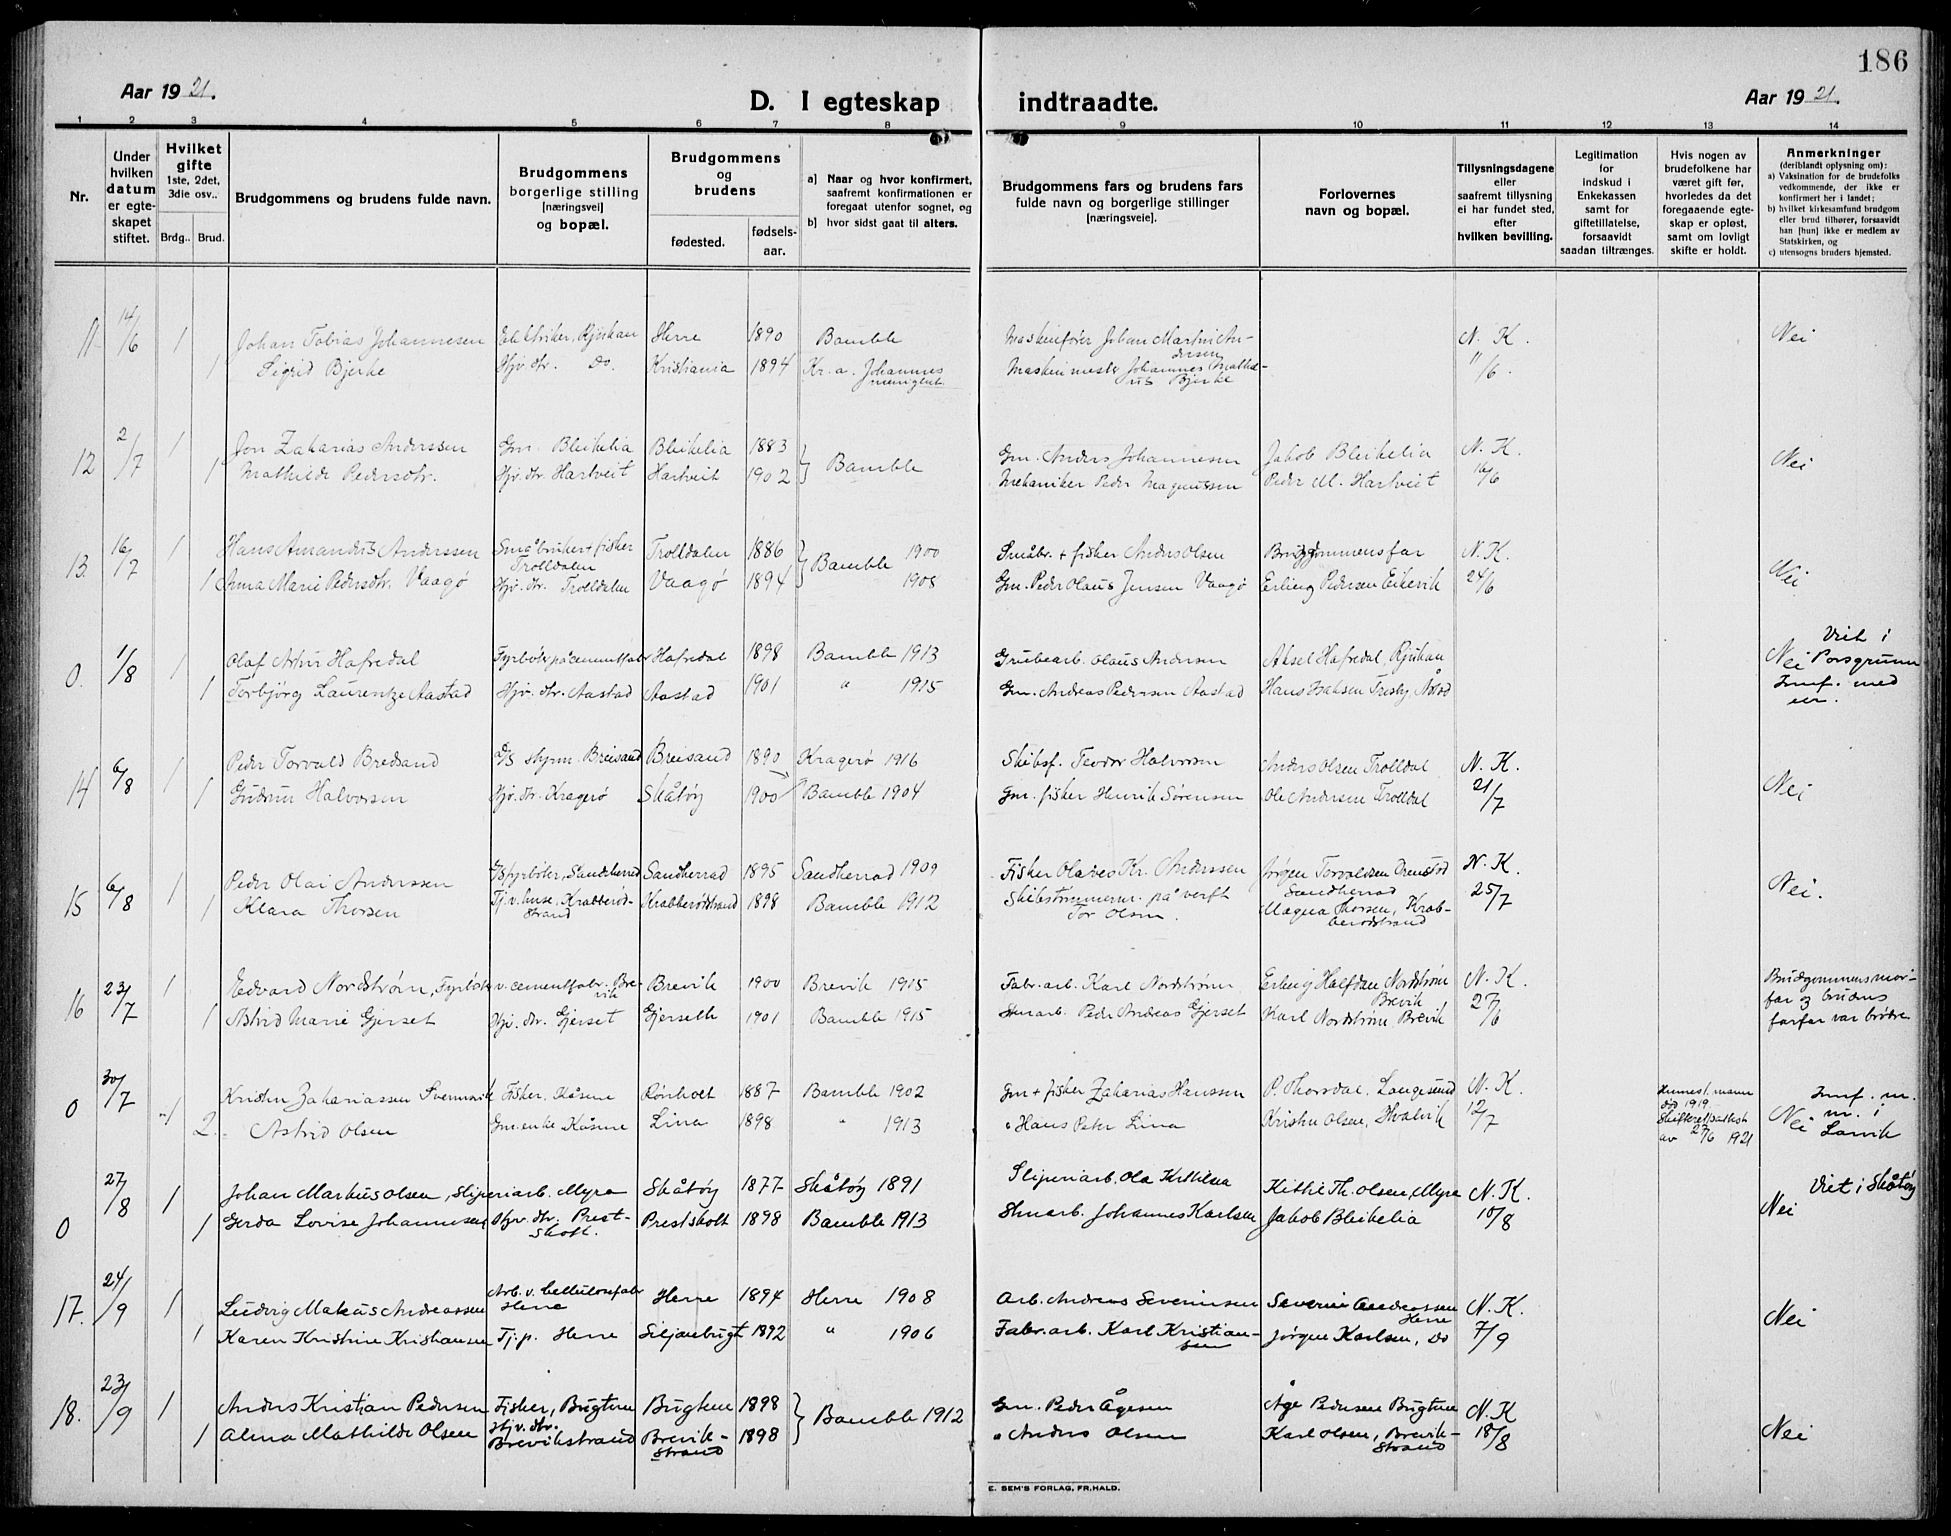 186
Aar 1921.
D. I egteskap indtraadte.
Aar 1921.
1 2 3 4 5 6 7 8 9 10 11 12 13 14
Nr.
Under hvilken datum er egteskapet stiftet.
Hvilket gifte 1ste, 2det, 3die osv..
Brdg.. Brud.
Brudgommens og brudens fulde navn.
Brudgommens borgerlige stilling [næringsvei] og bopæl.
Brudgommens og brudens
fødested.
fødsels-aar.
a) Naar og hvor konfirmert, saafremt konfirmationen er foregaat utenfor sognet, og
b) hvor sidst gaat til alters.
Brudgommens fars og brudens fars fulde navn og borgerlige stillinger [næringsveie].
Forlovernes navn og bopæl.
Tillysningsdagene eller saafremt tillysning ei har fundet sted, efter hvilken bevilling.
Legitimation for indskud i Enkekassen samt for giftetillatelse, forsaavidt saadan tiltrænges.
Hvis nogen av brudefolkene har været gift før, hvorledes da det foregaaende egteskap er opløst, samt om lovligt skifte er holdt.
Anmerkninger (deriblandt oplysning om):
a) Vaksination for de brudefolks vedkommende, der ikke er konfirmert her i landet;
b) hvilket kirkesamfund brudgom eller brud tilhører, forsaavidt han [hun] ikke er medlem av Statskirken, og
c) utensogns bruders hjemsted.
11 14/6 1 Johan Tobias Johannesen Elektriker, Rjukan Herre 1890 Bamble Maskinfører Johan Martin Andersen N. K. Nei
1 Sigrid Bjerke Hjv. dtr. Do. Kristiania 1894 Kr.a. Johannes menighet Maskinmester Johannes Mathæus Bjerke 11/6.
12 2/7 1 Jon Zakarias Anderssen Gm. Bleikelia Bleikelia 1883 Bamble Gm. Anders Johannesen Jakob Bleikelia N. K. Nei
1 Mathilde Pedersdtr. Hjv. dtr. Hartveit Hartveit 1902 Mekaniker Peder Magnussen Peder M. Hartveit 16/6
13. 16/7 1 Hans Amandus Anderssen Småbruker + fisker Trolldalen Trolldalen 1886 Bamble 1900 Småbr. + fisker Anders Olsen Brudgommens far N. K. Nei
1 Anna Marie Pedersdtr. Vaagø Hjv. dtr. Trolldalen Vaagø 1894 1908 Gm. Peder Olaus Jensen Vaagø Erling Pedersen Eikevik 24/6
0. 1/8 1 Olaf Artur Hafredal Fyrbøter på cementfabr Hafredal 1898 Bamble 1913 Grubearb. Olaus Andersen Aksel Hafredal, Rjukan Nei Viet i Porsgrunn
1 Torbjørg Laurentze Aastad Hjv. dtr. Aastad Aastad 1901 " 1915 Gm. Andreas Pedersen Aastad Hans Isaksen Tresby, Åstad
14 6/8 1 Peder Torvald Bredsand D/S styrm. Breisand Breisand 1890 Kragerø 1916 Skibsf. Teodor Halvorsen Anders Olsen Trolldal N. K. Nei
1 Gudrun Halvorsen Hjv. dtr. Kragerø Skåtøy 1900 Bamble 1904 Gm. fisker Henrik Sørensen Ole Andersen Trolldal 21/7
15 6/8 1 Peder Olai Anderssen D/S fyrbøter, Sandherred Sandherrad 1895 Sandherrad 1909 Fisker Olaves Kr. Anderssen Jørgen Torvaldsen Sandherrad N. K. Nei.
1 Klara Thorsen Tj. v. huse, Krabberødstrand Krabberødstrand 1898 Bamble 1912 Skibstømmerm. på verft Tor Olsen. Magna Thorsen, Krabberødstrand 25/7
16 23/7 1 Edvard Nordstrøm, Fyrbøter v. cementfabr. Brevik Brevik 1900 Brevik 1915 Fabr. arb. Karl Nordstrøm Erling Halfdan Nordstrøm Brevik N. K. Brudgommens morfar og brudens farfar var brødre
1 Astrid Marie Gjerset Hjv. dtr. Gjerset Gjerseth 1901 Bamble 1915 Stenarb. Peder Andreas Gjerset Karl Nordstrøm Brevik 27/6
0 30/7 1 Kristen Zakariassen Svenmvik Fisker, Kåsene Rønholt 1887 Bamble 1902 Gm + fisker Zakarias Hanssen P. Thorsdal, Langesund N. K. Hennes 1. mann død 1919 Skifteret. attest av 27/6 1921 Nei
2. Astrid Olsen Gm. enke Kåsene Lina 1898 " 1913 " Hans Peter Lina Kristen Olsen, 12/7 Larvik
0 27/8 1 Johan Markus Olsen, Sliperiarb. Myra Skåtøy 1877 Skåtøy 1891 Sliperiarb. Ola Kittilsen Kittil Th. Olsen, Myra N. K. Nei Viet i Skåtøy
1 Gerda Lovise Johannesen Hjv. dtr. Prestskolt. Prestskolt 1898 Bamble 1913 Stenarb. Johannes Karlsen Jakob Bleikelia 10/8
17. 24/9 1 Ludvig Makus Andreassen Arb. v. cellulosefabr Herre Herre 1894 Herre 1908 Arb. Andreas Severinsen Severin Andreassen Herre N. K. Nei
1 Karen Kristine Kristiansen Tj. p. Herre Siljanbugt 1892 " 1906 Fabr. arb. Karl Kristiansen Jørgen Karlsen, Do 7/9
18. 23/9 1 Anders Kristian Pedersen Fisker, Bugtene Bugtene 1898 Bamble 1912 Gm. Peder Ågesen Åge Pedersen Bugtene N. K Nei
1 Alma Mathilde Olsen Hjv. dtr. Brevikstrand Brevikstrand 1898 " Anders Olsen Karl Olsen, Brevikstrand 18/8
E. SEM'S FORLAG, FR.HALD.